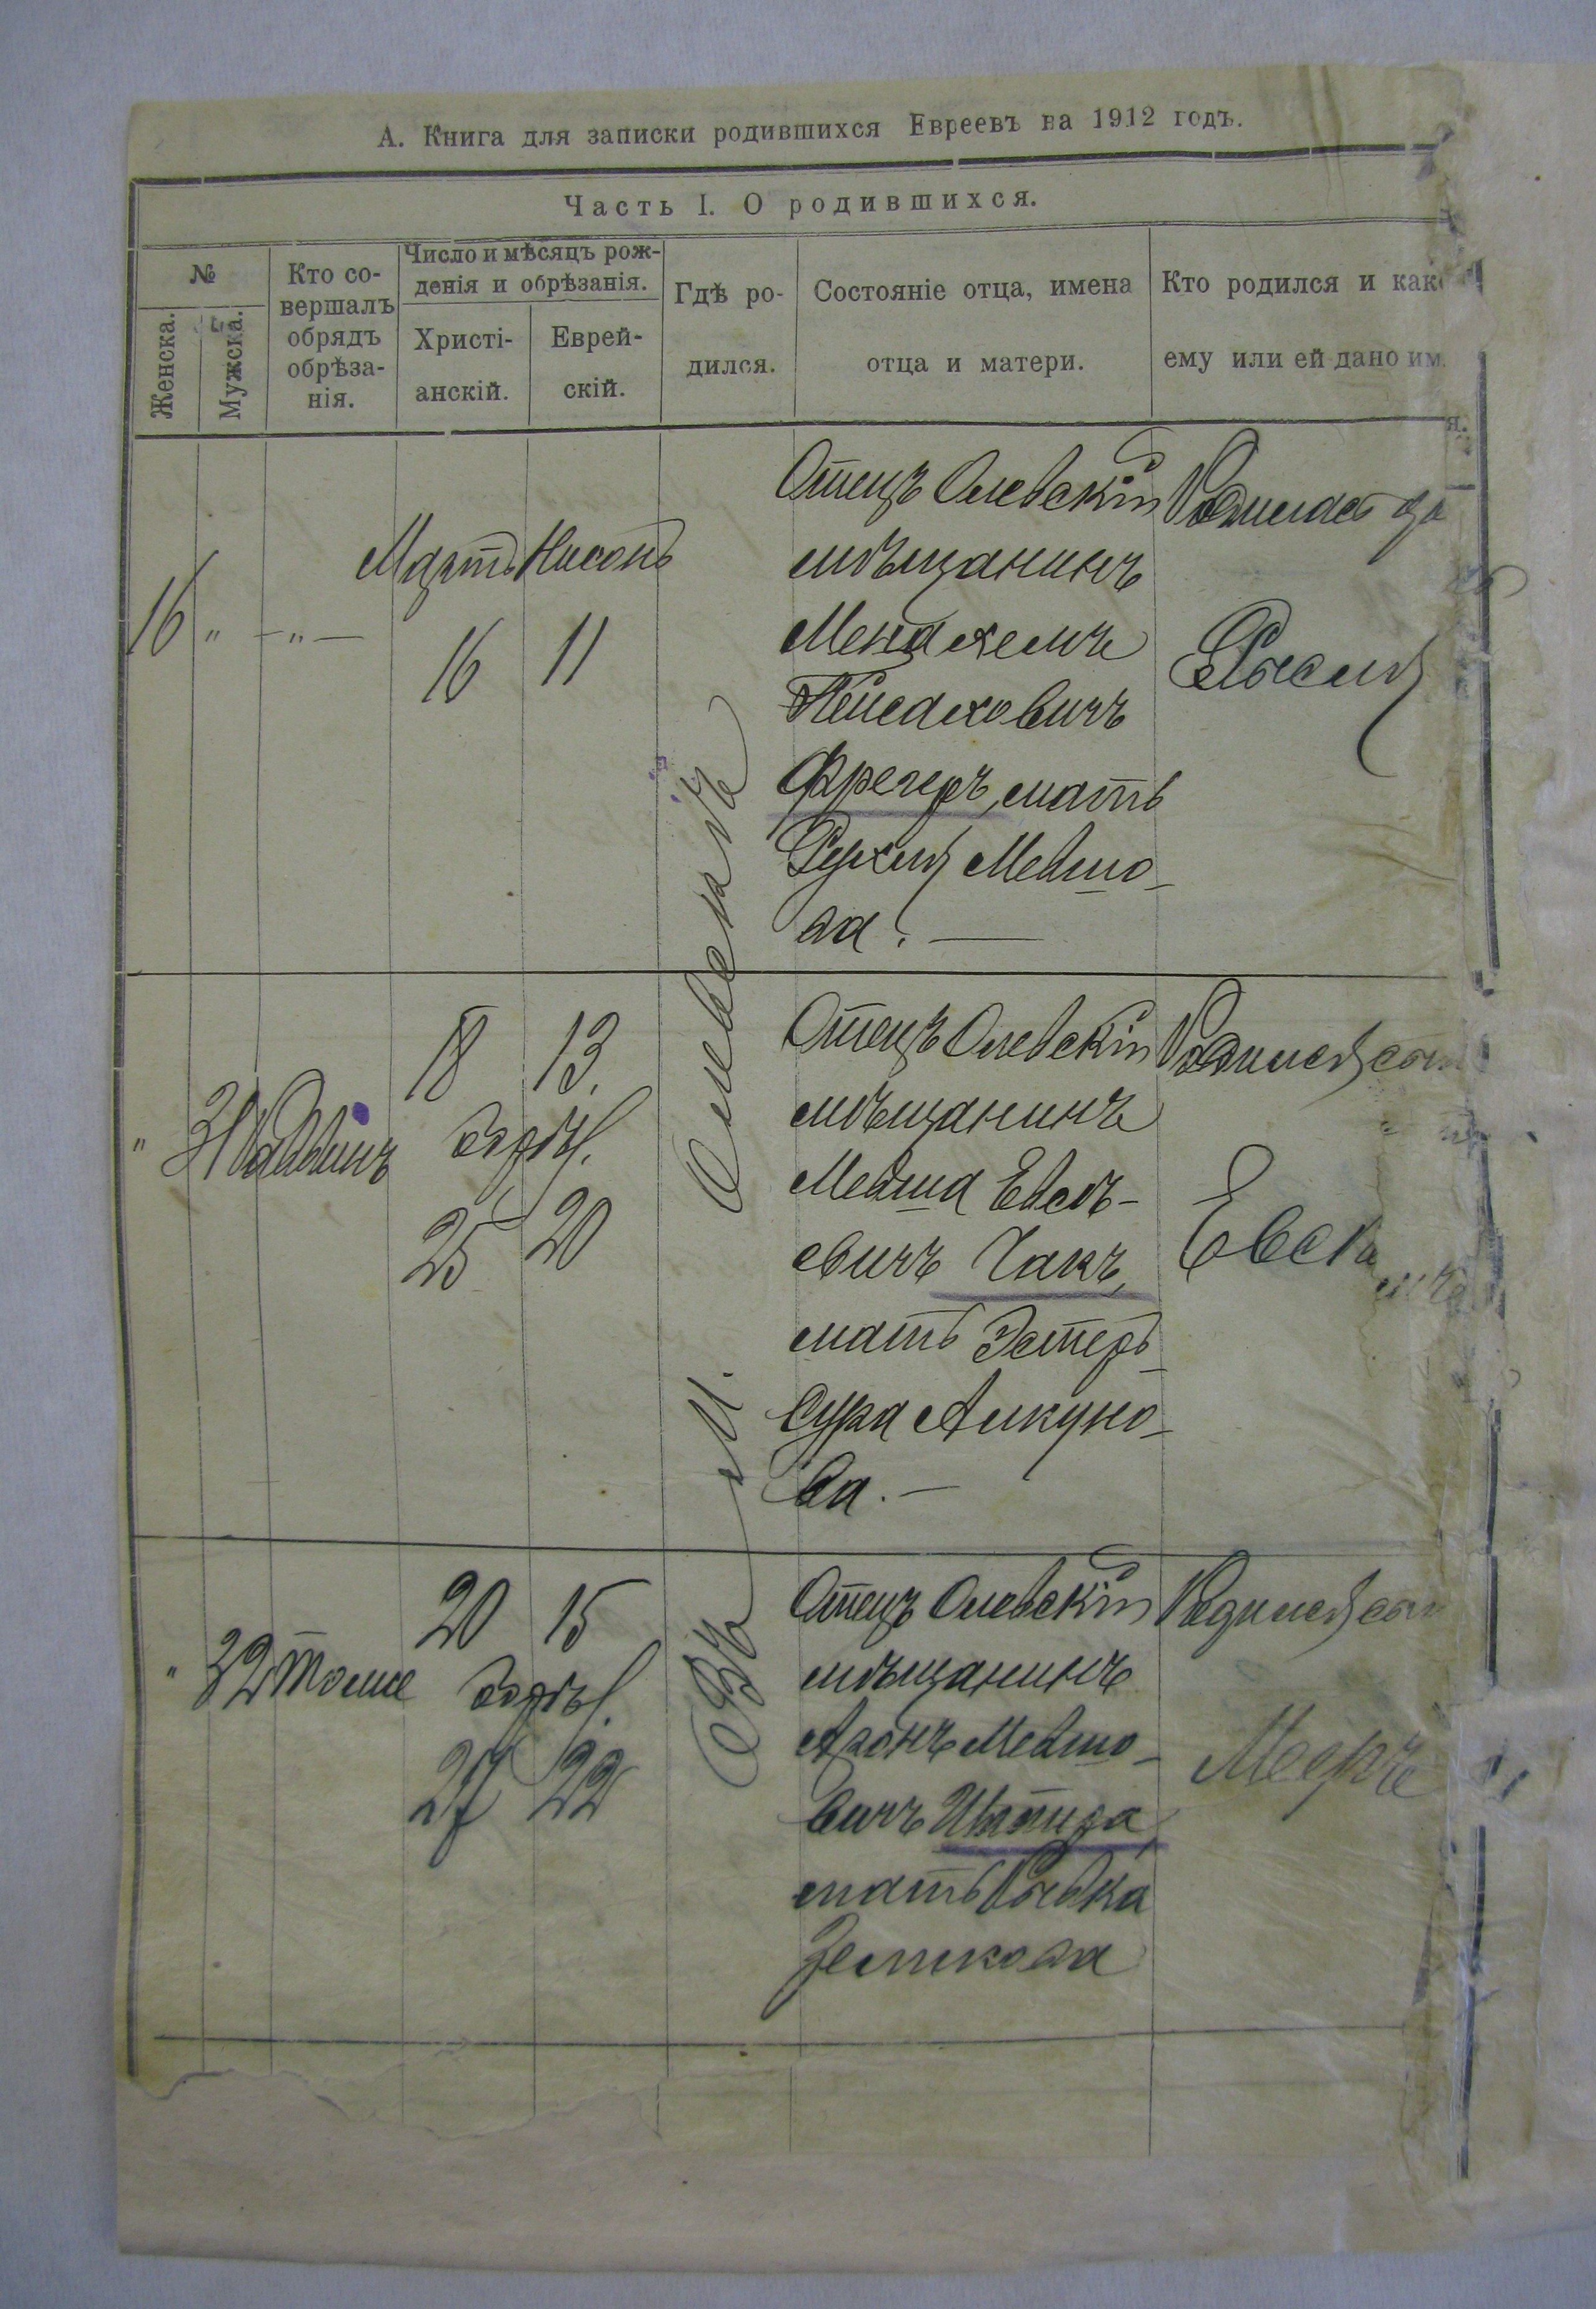 А. Книга для записки родившихся Евреевъ на 1912 годъ.
Часть I. О родившихся.
№
Женска.
Мужска.
Кто со-
вершалъ
обрядъ
обрѣза-
нія.
Число и мѣсяцъ рож-
денія и обрѣзанія.
Христі-
анскій.
Еврей-
скій.
Гдѣ ро-
дился.
Состояніе отца, имена
отца и матери.
Кто родился и как
ему или ей дано им
я.
16 " — " —
Мартъ Нисонъ
16 11
Въ м. Олевскѣ
Отецъ Олевскій
мѣщанинъ
Менахемъ
Пейсаховичъ
Фрегеръ, мать
Рухля Мовшо-
ва. —
Родилась
Рысля
" 31 Раввинъ
18 13.
обрѣз.
25 20
Отецъ Олевскій
мѣщанинъ
Мовша Евсѣ-
евичъ Чакъ,
мать Эстеръ-
Сура Анкуно-
ва. —
Родился сын
Евс
" 32 тоже
20 15
обрѣз.
27 22
Отецъ Олевскій
мѣщанинъ
Аронъ Мовшо-
вичъ Шапира,
мать Рывка
Зеликова
Родился сын
Мееръ